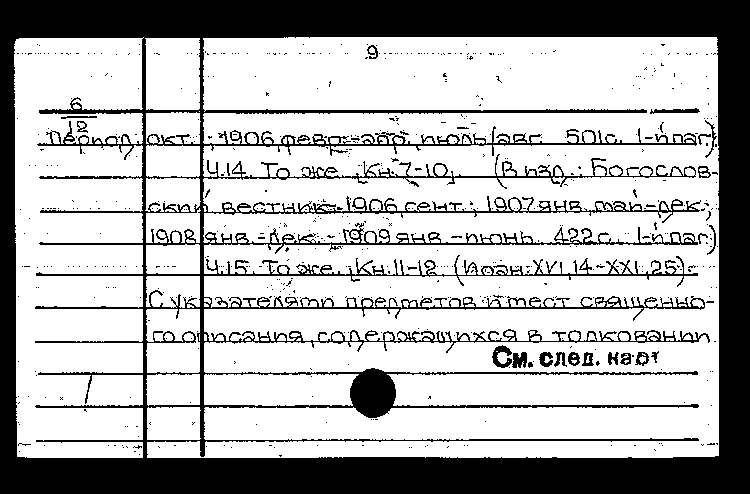 9
6
12
Период. окт.; 1906, февр.-апр., июль/авг. 501с. 1-й паг.)
Ч.14. То же. [Кн.7-10]. (В изд.: Богослов-
ский вестник. - 1906, сент.; 1907 янв., май-дек.;
1908 янв.-дек. - 1909 янв.-июнь. 422с. 1-й паг.)
Ч.15. То же. [Кн.11-12 (Иоан: XVI, 14-XXI, 25).-
С указателями предметов и мест священно-
го описания, содержащихся в толковании
См. след. карт